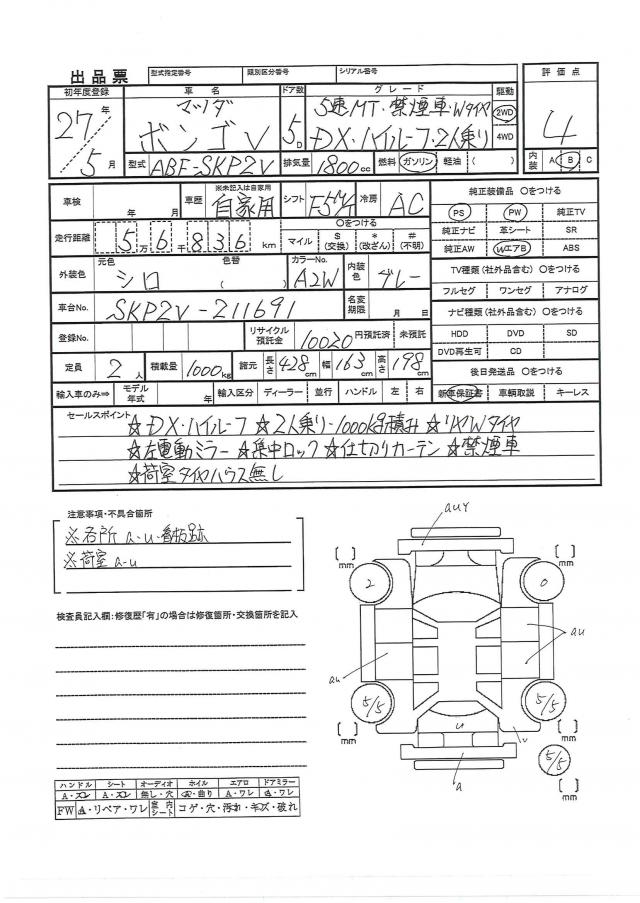 出品票 型式指定番号 類別区分番号 シリアル番号
評価点
4
内装 A B C
初年度登録 車名 ドア数 グレード 駆動
27年 マツダ 5D 5速MT・禁煙車・Wタイヤ 2WD
5月 ボンゴV DX・ハイルーフ・2人乗り 4WD
型式 ABF-SKP2V 排気量 1800cc 燃料 ガソリン 軽油 ( )
車検 年 月 車歴 ※未記入は自家用 自家用 シフト F5 冷房 AC
走行距離 5万6千836km マイル $(交換) *(改ざん) #(不明)
〇をつける
外装色 元色 シロ 色替 ( ) カラーNo. A2W 内装色 グレー
車台No. SKP2V-211691 名変期限 月 日
登録No. リサイクル預託金 10020円預託済 未預託
定員 2人 積載量 1000kg 諸元 長さ 428cm 幅 163cm 高さ 198cm
輸入車のみ⇒ モデル年式 年 輸入区分 ディーラー 並行 ハンドル 左 右
純正装備品 〇をつける
PS PW 純正TV
純正ナビ 革シート SR
純正AW エアB ABS
TV種類(社外品含む) 〇をつける
フルセグ ワンセグ アナログ
ナビ種類(社外品含む) 〇をつける
HDD DVD SD
DVD再生可 CD
後日発送品 〇をつける
新車保証書 車輌取説 キーレス
セールスポイント
☆DX・ハイルーフ ☆2人乗り-1000kg積み ☆リヤWタイヤ
☆左電動ミラー ☆集中ロック ☆仕切りカーテン ☆禁煙車
☆荷室タイヤハウス無し
注意事項・不具合箇所
※各所 a-u・看板跡
※荷室 a-u
検査員記入欄:修復歴「有」の場合は修復箇所・交換箇所を記入
auY
[ ] mm
[ ] mm
2
0
au
au
5/5
5/5
u
v
[ ] mm
[ ] mm
5/5
a
[ ] mm
ハンドル シート オーディオ ホイル エアロ ドアミラー
A・スレ A・スレ 無し・穴 A・曲り A・ワレ A・ワレ
FW A・リペア・ワレ 室内シート コゲ・穴・汚れ・キズ・破れ